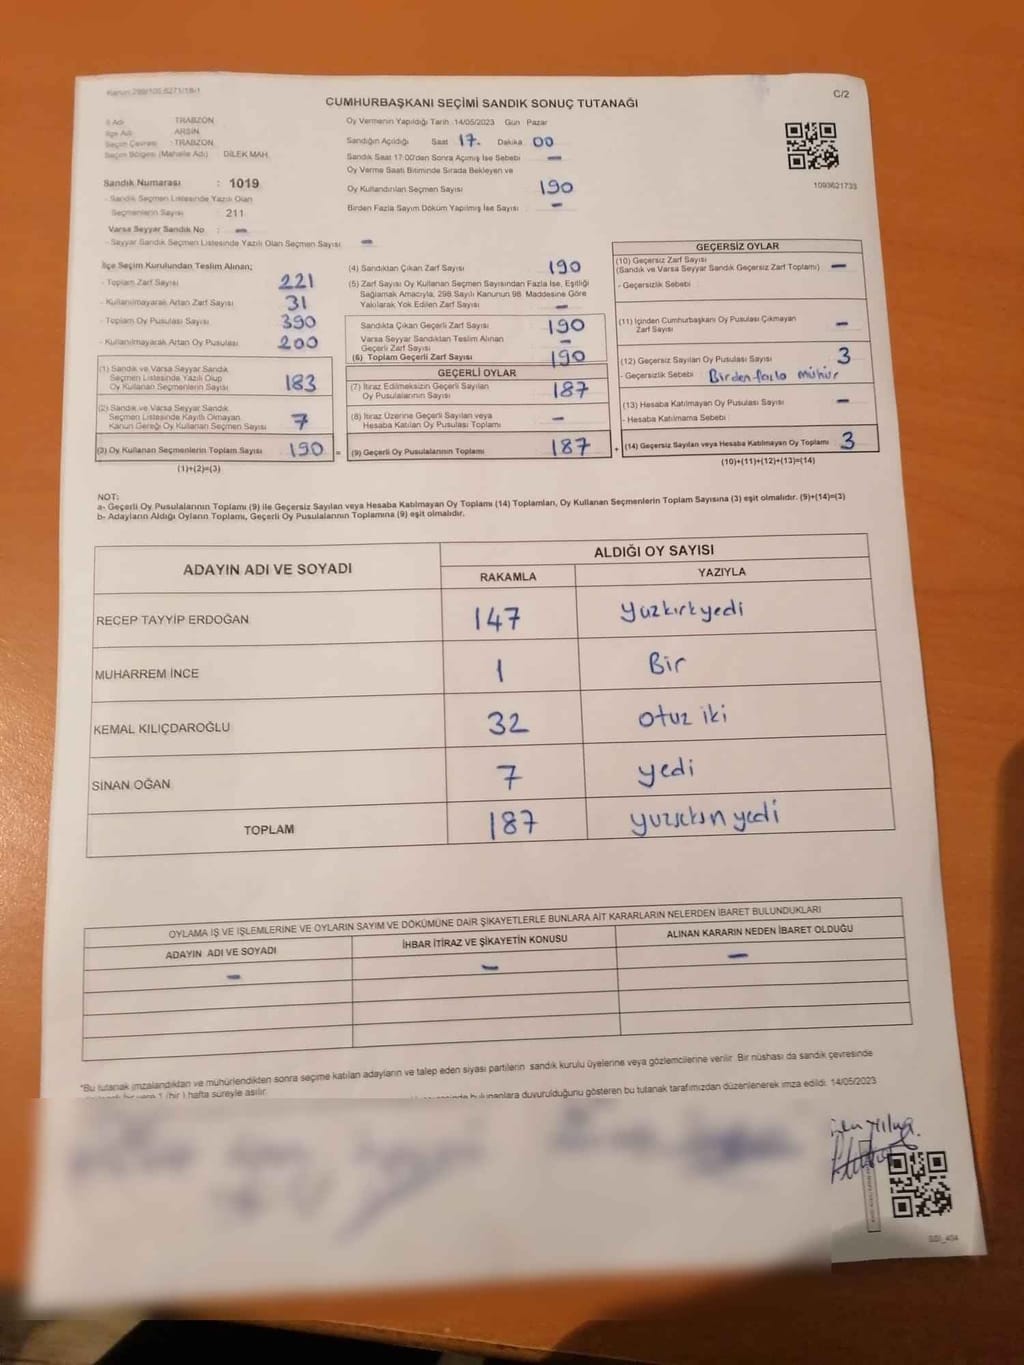 Kanun 298/105,6271/18/1
C/2
CUMHURBAŞKANI SEÇİMİ SANDIK SONUÇ TUTANAĞI
İl Adı TRABZON
İlçe Adı ARSİN
Seçim Çevresi : TRABZON
Seçim Bölgesi (Mahalle Adı) DİLEK MAH.
Sandık Numarası : 1019
- Sandık Seçmen Listesinde Yazılı Olan
Seçmenlerin Sayısı : 211
Varsa Seyyar Sandık No : -
- Seyyar Sandık Seçmen Listesinde Yazılı Olan Seçmen Sayısı -
Oy Vermenin Yapıldığı Tarih 14/05/2023 Gün Pazar
Sandığın Açıldığı Saat 17. Dakika 00
Sandık Saat 17:00'den Sonra Açımış İse Sebebi -
Oy Verme Saati Bitiminde Sırada Bekleyen ve
Oy Kullandırılan Seçmen Sayısı 190
Birden Fazla Sayım Döküm Yapılmış İse Sayısı -
1093621733
İlçe Seçim Kurulundan Teslim Alınan;
- Toplam Zarf Sayısı 221
- Kullanılmayarak Artan Zarf Sayısı 31
- Toplam Oy Pusulası Sayısı 390
- Kullanılmayarak Artan Oy Pusulası 200
(1) Sandık ve Varsa Seyyar Sandık
Seçmen Listesinde Yazılı Olup
Oy Kullanan Seçmenlerin Sayısı 183
(2) Sandık ve Varsa Seyyar Sandık
Seçmen Listesinde Kayıtlı Olmayan
Kanun Gereği Oy Kullanan Seçmen Sayısı 7
(3) Oy Kullanan Seçmenlerin Toplam Sayısı 190 =
(1)+(2)=(3)
(4) Sandıktan Çıkan Zarf Sayısı 190
(5) Zarf Sayısı Oy Kullanan Seçmen Sayısından Fazla İse, Eşitliği
Sağlamak Amacıyla, 298 Sayılı Kanunun 98. Maddesine Göre
Yakılarak Yok Edilen Zarf Sayısı -
Sandıkta Çıkan Geçerli Zarf Sayısı 190
Varsa Seyyar Sandıktan Teslim Alınan
Geçerli Zarf Sayısı -
(6) Toplam Geçerli Zarf Sayısı 190
GEÇERLİ OYLAR
(7) İtiraz Edilmeksizin Geçerli Sayılan
Oy Pusulasının Sayısı 187
(8) İtiraz Üzerine Geçerli Sayılan veya
Hesaba Katılan Oy Pusulası Toplamı -
(9) Geçerli Oy Pusulalarının Toplamı 187 +
GEÇERSİZ OYLAR
(10) Geçersiz Zarf Sayısı
(Sandık ve Varsa Seyyar Sandık Geçersiz Zarf Toplamı) -
- Geçersizlik Sebebi
(11) İçinden Cumhurbaşkanı Oy Pusulası Çıkmayan
Zarf Sayısı -
(12) Geçersiz Sayılan Oy Pusulası Sayısı 3
- Geçersizlik Sebebi Birden fazla mühür
(13) Hesaba Katılmayan Oy Pusulası Sayısı -
- Hesaba Katılmama Sebebi :
(14) Geçersiz Sayılan veya Hesaba Katılmayan Oy Toplamı 3
(10)+(11)+(12)+(13)=(14)
NOT:
a- Geçerli Oy Pusulalarının Toplamı (9) ile Geçersiz Sayılan veya Hesaba Katılmayan Oy Toplamı (14) Toplamları, Oy Kullanan Seçmenlerin Toplam Sayısına (3) eşit olmalıdır. (9)+(14)=(3)
b- Adayların Aldığı Oyların Toplamı, Geçerli Oy Pusulalarının Toplamına (9) eşit olmalıdır.
ADAYIN ADI VE SOYADI ALDIĞI OY SAYISI
RAKAMLA YAZIYLA
RECEP TAYYİP ERDOĞAN 147 yüzkırkyedi
MUHARREM İNCE 1 Bir
KEMAL KILIÇDAROĞLU 32 otuz iki
SİNAN OĞAN 7 yedi
TOPLAM 187 yüzseksn yedi
OYLAMA İŞ VE İŞLEMLERİNE VE OYLARIN SAYIM VE DÖKÜMÜNE DAİR ŞİKAYETLERLE BUNLARA AİT KARARLARIN NELERDEN İBARET BULUNDUKLARI
ADAYIN ADI VE SOYADI İHBAR İTİRAZ VE ŞİKAYETİN KONUSU ALINAN KARARIN NEDEN İBARET OLDUĞU
- - -
*Bu tutanak imzalandıktan ve mühürlendikten sonra seçime katılan adayların ve talep eden siyasi partilerin sandık kurulu üyelerine veya gözlemcilerine verilir. Bir nüshası da sandık çevresinde
1 (bir) hafta süreyle asılır.
bulunanlara duyurulduğunu gösteren bu tutanak tarafımızdan düzenlenerek imza edildi. 14/05/2023